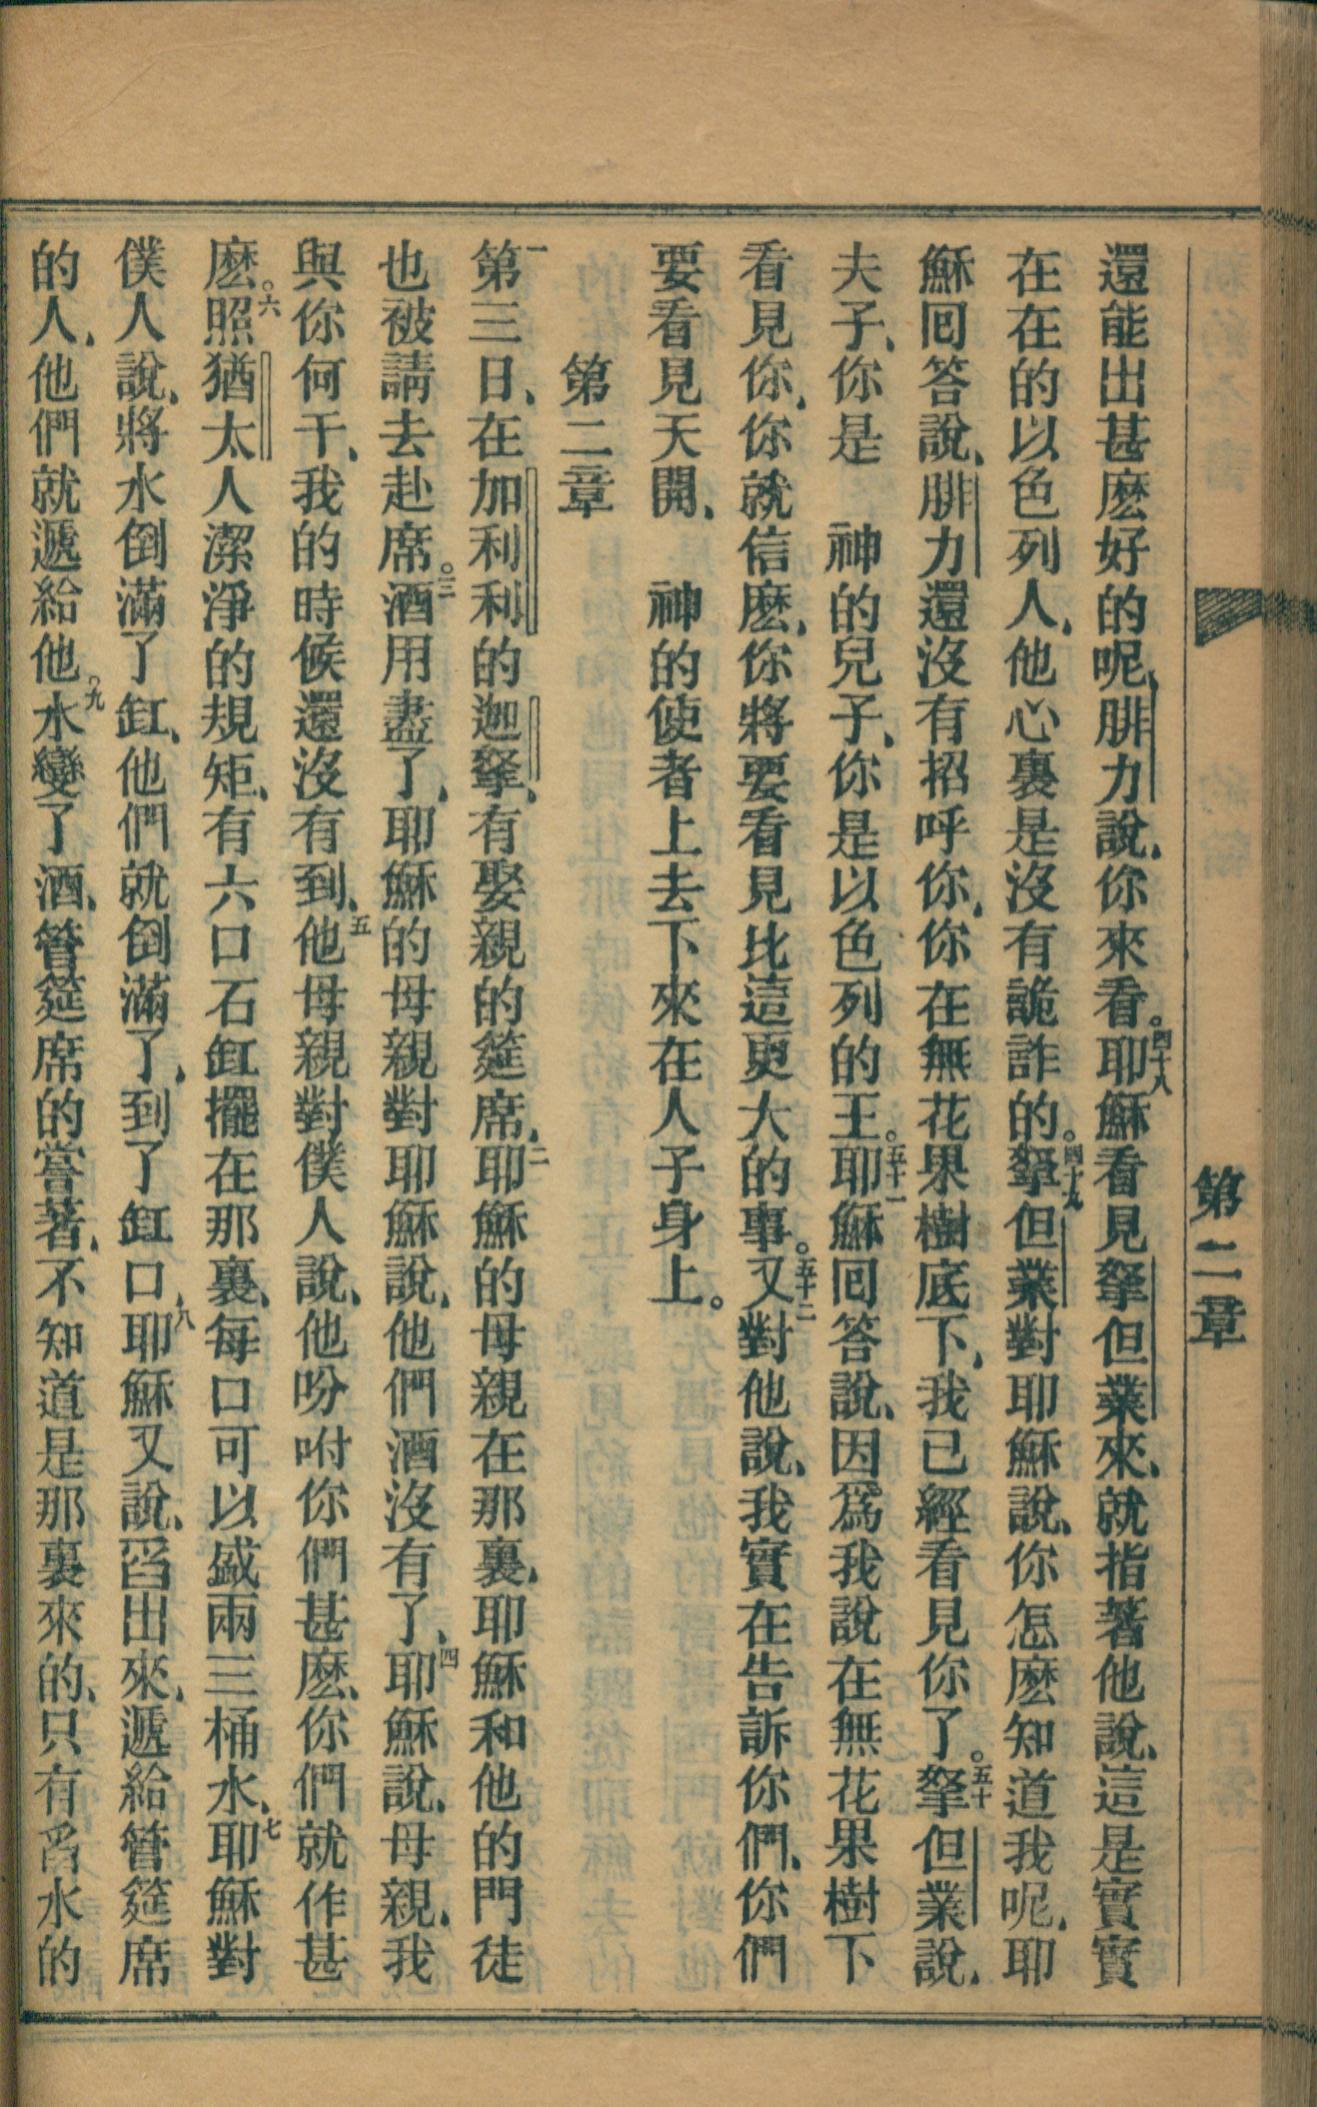 第二章
還能出甚麽好的呢、腓力說、你來看。四十八耶穌看見拏但業來、就指著他說、這是實實
在在的以色列人、他心裏是沒有詭詐的。四十九拏但業對耶穌說、你怎麽知道我呢、耶
穌囘答說、腓力還沒有招呼你、你在無花果樹底下、我已經看見你了。五十拏但業說、
夫子、你是　神的兒子、你是以色列的王。五十一耶穌囘答說、因爲我說在無花果樹下
看見你、你就信麽、你將要看見比這更大的事。五十二又對他說、我實在告訴你們、你們
要看見天開、　神的使者上去下來在人子身上。
第二章
一第三日、在加利利的迦拏、有娶親的筵席、二耶穌的母親在那裏、耶穌和他的門徒
也被請去赴席。三酒用盡了、耶穌的母親對耶穌說、他們酒沒有了、四耶穌說、母親、我
與你何干、我的時候還沒有到、五他母親對僕人說、他吩咐你們甚麽、你們就作甚
麽。六照猶太人潔淨的規矩、有六口石缸擺在那裏、每口可以盛兩三桶水、七耶穌對
僕人說、將水倒滿了缸、他們就倒滿了、到了缸口、八耶穌又說、舀出來、遞給管筵席
的人、他們就遞給他。九水變了酒、管筵席的嘗著、不知道是那裏來的、只有舀水的